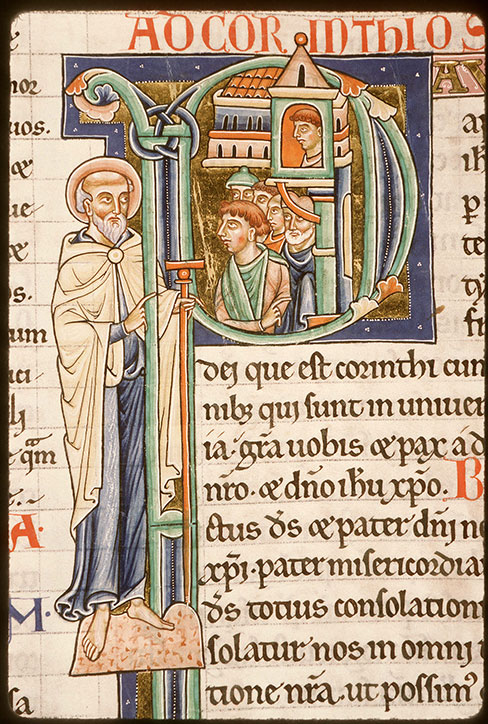 AD COR INTHIOS
P
dei que est corinthi cum
nib; qui sunt in univer
ia. gr̄a uobis & pax a d
nr̄o. & dn̄o ihu xp̄o. B
ctus d̄s & pater dn̄i n
xp̄i. pater misericordia
d̄s totius consolation
solatur nos in omni
tione nr̄a. ut possim
nor
uos.
&
ue
&
s.
um
qm̄
A.
M.
sa